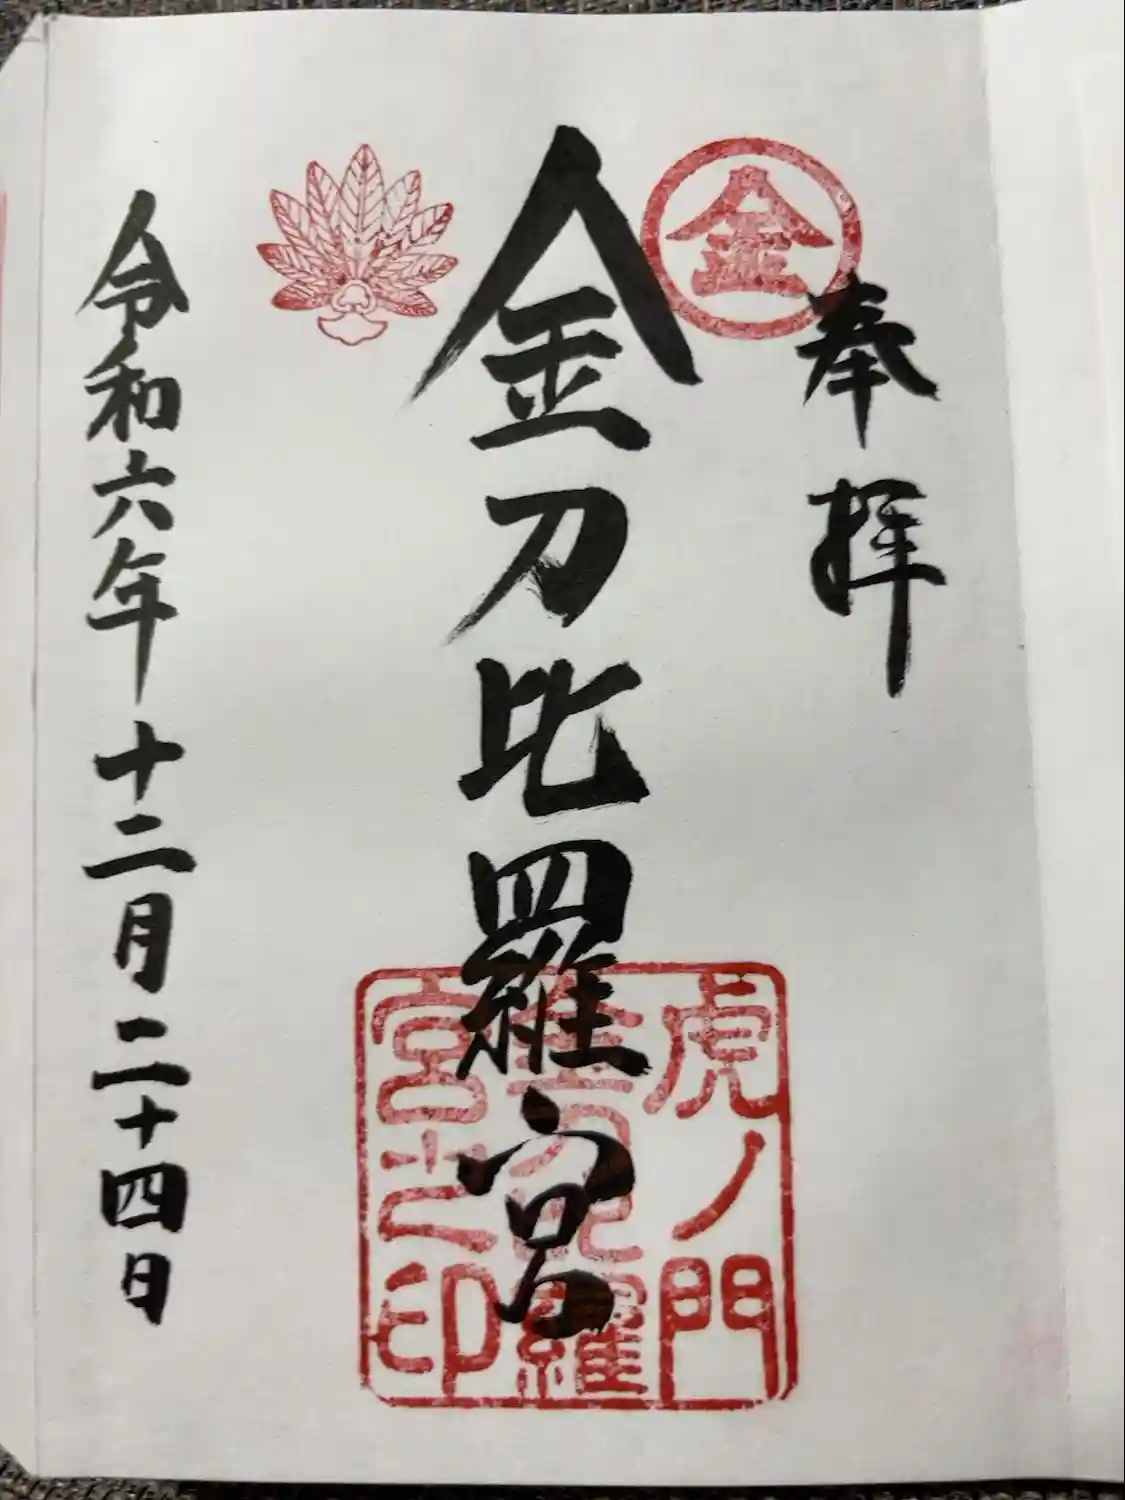 奉拝
金
金刀比羅宮
虎ノ門
金刀比羅
宮之印
令和六年十二月二十四日